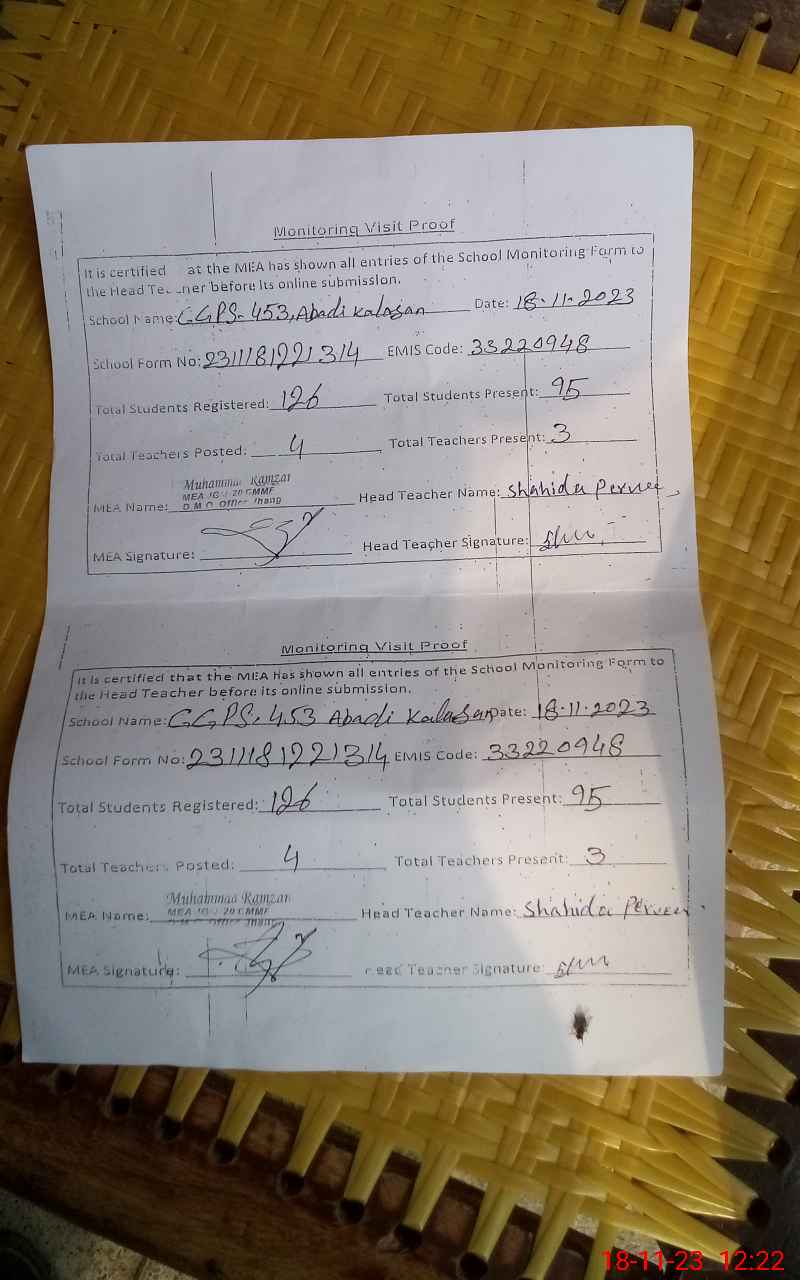 Monitoring Visit Proof
It is certified at the MEA has shown all entries of the School Monitoring Form to
the Head Te ner before its online submission.
School Name: GGPS-453, Abadi Kalasan Date: 18-11-2023
School Form No: 2311181221314 EMIS Code: 33220948
Total Students Registered: 126 Total Students Present: 95
Total Teachers Posted: 4 Total Teachers Present: 3
Muhammad Ramzan
MEA
D.M.O. Office Jhang
MEA Name: Head Teacher Name: Shahida Perveen
MEA Signature: Head Teacher Signature:
Monitoring Visit Proof
It is certified that the MEA has shown all entries of the School Monitoring Form to
the Head Teacher before its online submission.
School Name: GGPS-453 Abadi Kalasan Date: 18-11-2023
School Form No: 2311181221314 EMIS Code: 33220948
Total Students Registered: 126 Total Students Present: 95
Total Teachers Posted: 4 Total Teachers Present: 3
Muhammad Ramzan
MEA
D.M.O. Office Jhang
MEA Name: Head Teacher Name: Shahida Perveen
MEA Signature: Head Teacher Signature:
18-11-23 12:22